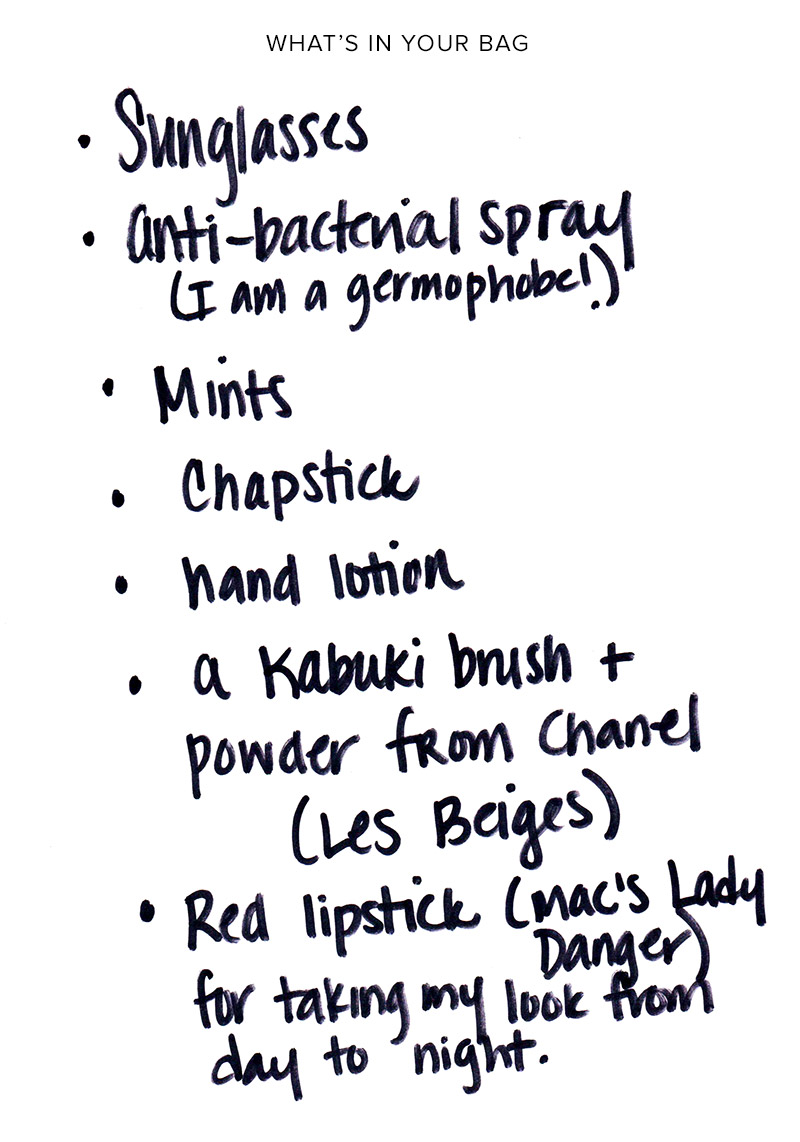 WHAT'S IN YOUR BAG
• Sunglasses
• anti-bacterial spray
(I am a germophobe!)
• Mints
• Chapstick
• hand lotion
• a Kabuki brush +
powder from Chanel
(Les Beiges)
• Red lipstick (Mac's Lady
Danger)
for taking my look from
day to night.